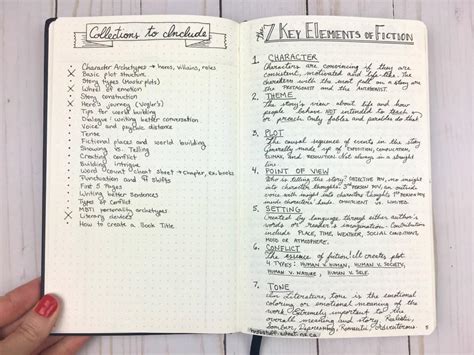 Collections to Include
Character Archetypes → heros, villains, roles
Basic plot structure
Story types (Booker plots)
Wheel of emotion
Story construction
Hero's journey (Vogler's)
Tips for world building
Dialogue: writing better conversation
Voice and psychic distance
Tense
Fictional places and world building
Showing vs. Telling
Creating conflict
Building intrigue
Word count cheat sheet → chapter, ex. books
Punctuation and shifts
First 5 Pages
Writing better sentences
Types of Conflict
MBTI personality archetypes
Literary devices
How to create a Book Title
The 7 Key Elements of Fiction
1. CHARACTER
Characters are convincing if they are
consistent, motivated and life-like. The
characters with the most pull on a story are
the PROTAGONIST and the ANTAGONIST.
2. THEME
The story's view about life and how
people behave. NOT intended to teach
or preach. Only fables and parables do that
3. PLOT
The causal sequence of events in the story
Generally made up of EXPOSITION, COMPLICATIONS,
CLIMAX, and RESOLUTION. Not always in a straight
line.
4. POINT OF VIEW
Who is telling the story? OBJECTIVE POV, no insight
into character thoughts. 3rd PERSON POV, an outside
voice with insight into character thoughts. 1st PERSON POV
made character's lens. OMNISCIENT or LIMITED.
5. SETTING
Created by language through either author's
words or reader's imagination. Contributions
include PLACE, TIME, WEATHER, SOCIAL CONDITIONS,
MOOD or ATMOSPHERE.
6. CONFLICT
The essence of fiction! It creates plot
4 TYPES: HUMAN V. HUMAN, HUMAN V. SOCIETY,
HUMAN V. NATURE, HUMAN V. SELF.
7. TONE
In Literature, tone is the emotional
coloring or emotional meaning of the
work. Extremely important to the
overall meaning and story. Realistic,
Somber, Depressing, Romantic, Adventurous.
5